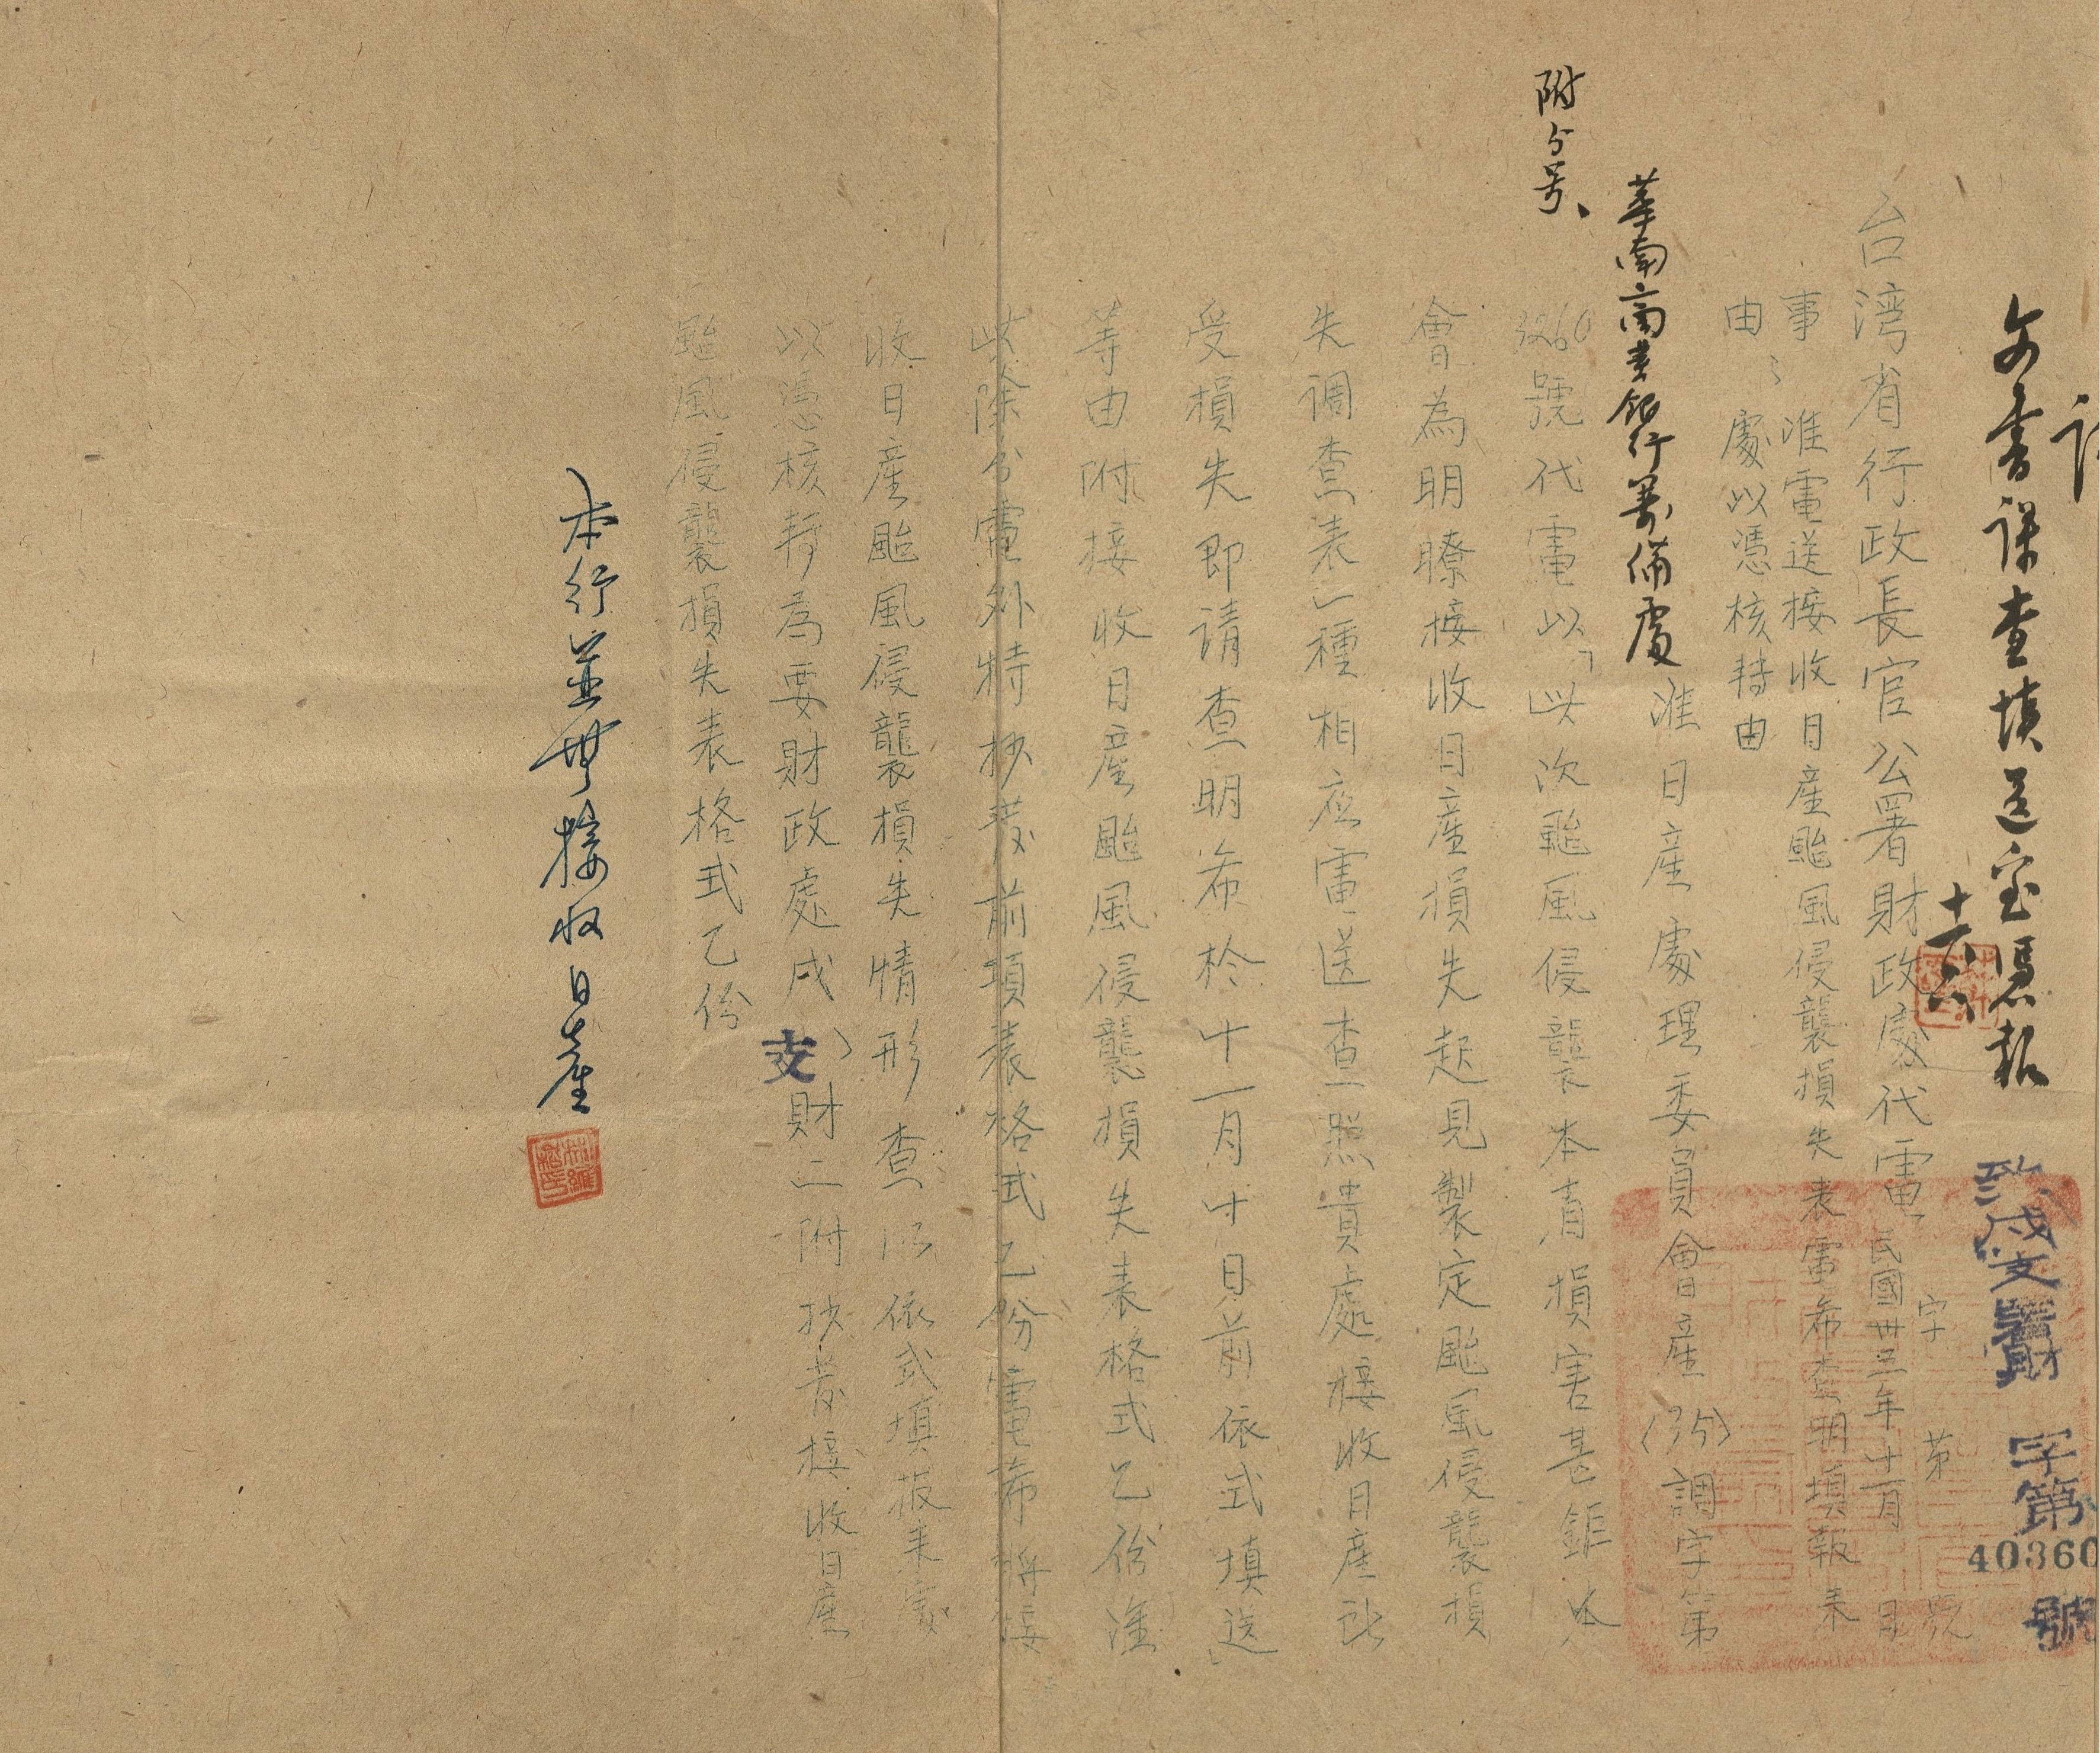 文書課查填送室憑報
十六
致戌支署財 字第40360號
台湾省行政長官公署財政處代電 民國卅五年十一月 日 字 第 號
事由:准電送接收日產颱風侵襲損失表電希查明填報来
處以憑核轉由
華南商業銀行籌備處 准日產處理委員會產(35)調字第
附分号、
3260號代電以「此次颱風侵襲本省損害甚鉅本
會為明瞭接收日產損失起見製定颱風侵襲損
失調查表一種相应電送查照貴處接收日產如
受損失即請查明希於十一月十日前依式填送
等由附接收日產颱風侵襲損失表格式乙份准
此除分電外特抄发前項表格式乙份電希將接
收日產颱風侵襲損失情形查以依式填报来處
以憑核轉為要財政處戌支財二附抄发接收日產
颱風侵襲損失表格式乙份
本行並無接收日產